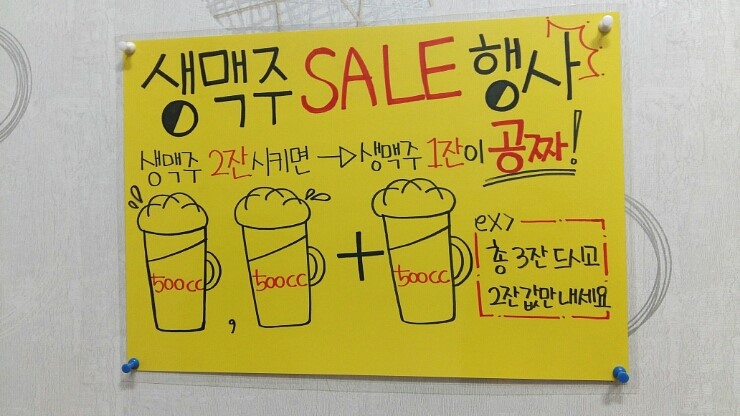 생맥주 SALE 행사
생맥주 2잔 시키면 → 생맥주 1잔이 공짜!
500cc , 500cc + 500cc
ex>
총 3잔 드시고
2잔 값만 내세요